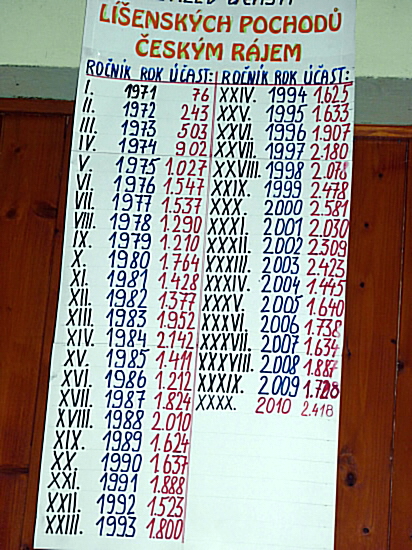 LÍŠENSKÝCH POCHODŮ
ČESKÝM RÁJEM
ROČNÍK ROK ÚČAST:
I. 1971 76
II. 1972 243
III. 1973 503
IV. 1974 902
V 1975 1.027
VI. 1976 1.547
VII. 1977 1.537
VIII. 1978 1.290
IX. 1979 1.210
X. 1980 1.764
XI. 1981 1.428
XII. 1982 1377
XIII. 1983 1.952
XIV. 1984 2.142
XV. 1985 1.411
XVI. 1986 1.212
XVII. 1987 1.824
XVIII. 1988 2.010
XIX. 1989 1.624
XX. 1990 1.637
XXI. 1991 1.888
XXII. 1992 1.523
XXIII. 1993 1.800
ROČNÍK ROK ÚČAST:
XXIV. 1994 1.625
XXV. 1995 1.633
XXVI. 1996 1.907
XXVII. 1997 2.180
XXVIII. 1998 2.078
XXIX. 1999 2478
XXX. 2000 2.581
XXXI. 2001 2.030
XXXII. 2002 2.309
XXXIII. 2003 2.423
XXXIV. 2004 1.445
XXXV. 2005 1.640
XXXVI. 2006 1.738
XXXVII. 2007 1.634
XXXVIII. 2008 1.887
XXXIX. 2009
XXXX. 2010 2.418